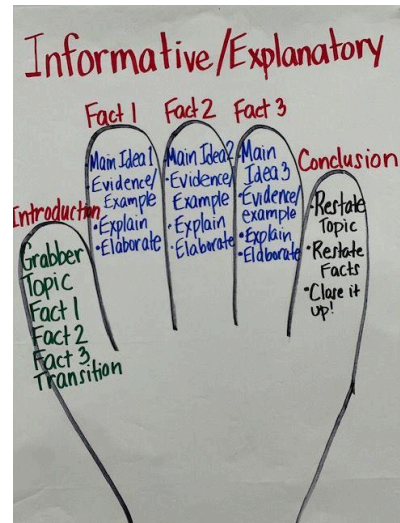 Informative/Explanatory
Fact 1 Fact 2 Fact 3
Introduction
Grabber
Topic
Fact 1
Fact 2
Fact 3
Transition
Main Idea 1
•Evidence/
Example
•Explain
•Elaborate
Main Idea 2
•Evidence/
Example
•Explain
•Elaborate
•Main
Idea 3
•Evidence/
example
•Explain
•Elaborate
Conclusion
•Restate
Topic
•Restate
Facts
•Close it
up!